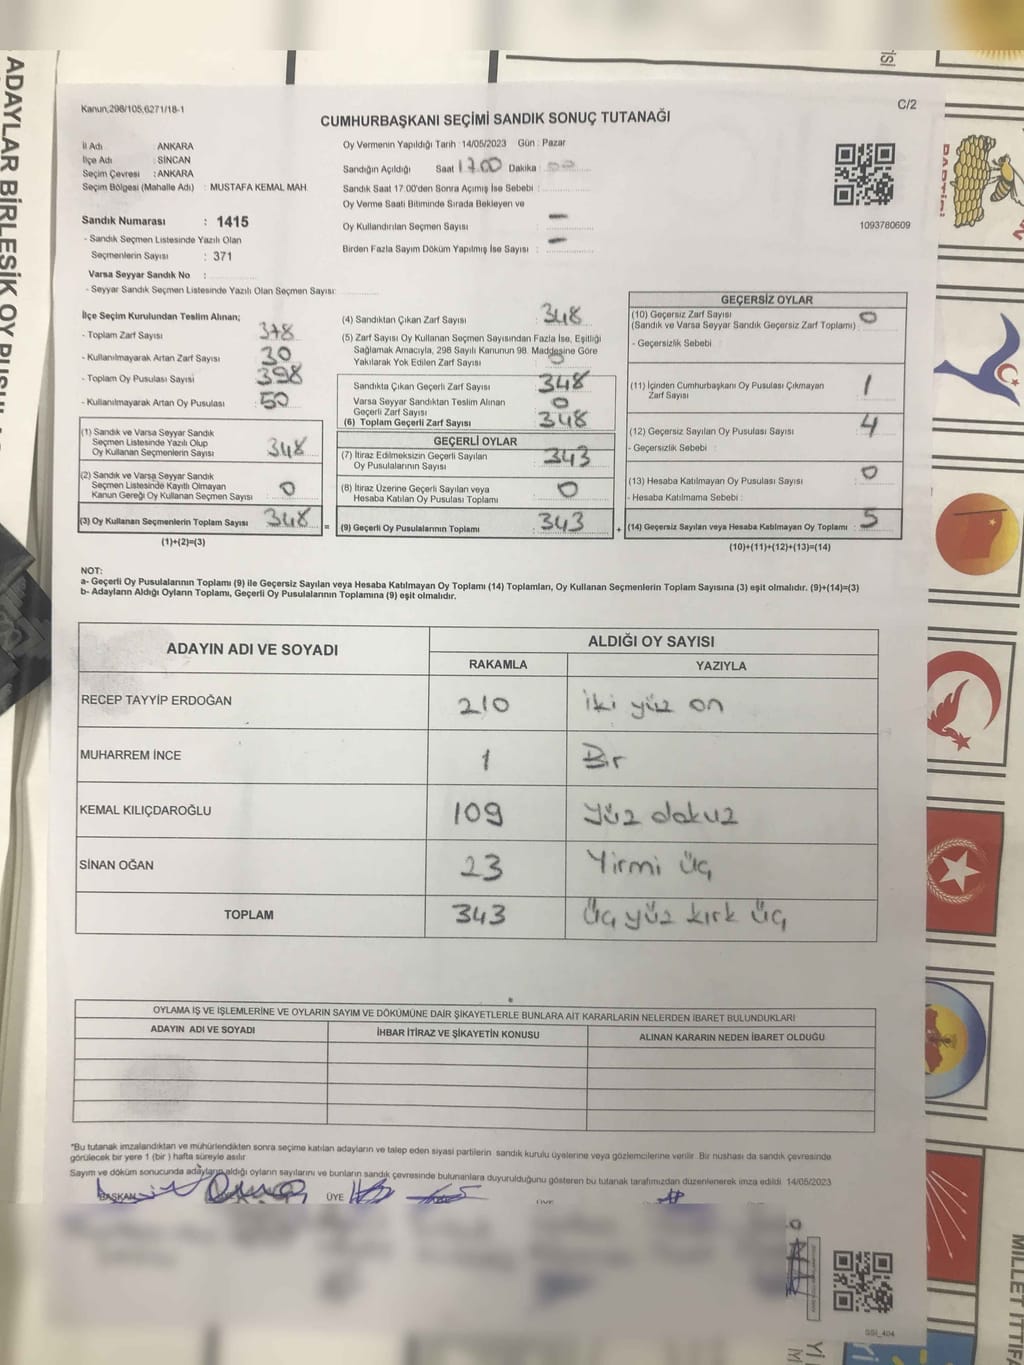 ADAYLAR BİRLEŞİK OY PUSULA
Kanun,298/105,6271/18-1
C/2
CUMHURBAŞKANI SEÇİMİ SANDIK SONUÇ TUTANAĞI
İl Adı ANKARA
İlçe Adı : SİNCAN
Seçim Çevresi : ANKARA
Seçim Bölgesi (Mahalle Adı) : MUSTAFA KEMAL MAH.
Sandık Numarası : 1415
- Sandık Seçmen Listesinde Yazılı Olan
Seçmenlerin Sayısı : 371
Varsa Seyyar Sandık No :
- Seyyar Sandık Seçmen Listesinde Yazılı Olan Seçmen Sayısı:
Oy Vermenin Yapıldığı Tarih : 14/05/2023 Gün : Pazar
Sandığın Açıldığı Saat 17.00 Dakika : 00
Sandık Saat 17.00'den Sonra Açımış İse Sebebi :
Oy Verme Saati Bitiminde Sırada Bekleyen ve
Oy Kullandırılan Seçmen Sayısı : —
Birden Fazla Sayım Döküm Yapılmış İse Sayısı : —
1093780609
İlçe Seçim Kurulundan Teslim Alınan;
- Toplam Zarf Sayısı : 378
- Kullanılmayarak Artan Zarf Sayısı : 30
- Toplam Oy Pusulası Sayısı : 398
- Kullanılmayarak Artan Oy Pusulası : 50
(1) Sandık ve Varsa Seyyar Sandık
Seçmen Listesinde Yazılı Olup
Oy Kullanan Seçmenlerin Sayısı 348
(2) Sandık ve Varsa Seyyar Sandık
Seçmen Listesinde Kayıtlı Olmayan
Kanun Gereği Oy Kullanan Seçmen Sayısı 0
(3) Oy Kullanan Seçmenlerin Toplam Sayısı 348
(1)+(2)=(3)
(4) Sandıktan Çıkan Zarf Sayısı 348
(5) Zarf Sayısı Oy Kullanan Seçmen Sayısından Fazla İse, Eşitliği
Sağlamak Amacıyla, 298 Sayılı Kanunun 98. Maddesine Göre
Yakılarak Yok Edilen Zarf Sayısı 0
Sandıkta Çıkan Geçerli Zarf Sayısı 348
Varsa Seyyar Sandıktan Teslim Alınan
Geçerli Zarf Sayısı 0
(6) Toplam Geçerli Zarf Sayısı 348
GEÇERLİ OYLAR
(7) İtiraz Edilmeksizin Geçerli Sayılan
Oy Pusulalarının Sayısı 343
(8) İtiraz Üzerine Geçerli Sayılan veya
Hesaba Katılan Oy Pusulası Toplamı 0
= (9) Geçerli Oy Pusulalarının Toplamı 343
GEÇERSİZ OYLAR
(10) Geçersiz Zarf Sayısı 0
(Sandık ve Varsa Seyyar Sandık Geçersiz Zarf Toplamı)
- Geçersizlik Sebebi :
(11) İçinden Cumhurbaşkanı Oy Pusulası Çıkmayan
Zarf Sayısı 1
(12) Geçersiz Sayılan Oy Pusulası Sayısı 4
- Geçersizlik Sebebi :
(13) Hesaba Katılmayan Oy Pusulası Sayısı 0
- Hesaba Katılmama Sebebi :
+ (14) Geçersiz Sayılan veya Hesaba Katılmayan Oy Toplamı : 5
(10)+(11)+(12)+(13)=(14)
NOT:
a- Geçerli Oy Pusulalarının Toplamı (9) ile Geçersiz Sayılan veya Hesaba Katılmayan Oy Toplamı (14) Toplamları, Oy Kullanan Seçmenlerin Toplam Sayısına (3) eşit olmalıdır. (9)+(14)=(3)
b- Adayların Aldığı Oyların Toplamı, Geçerli Oy Pusulalarının Toplamına (9) eşit olmalıdır.
ADAYIN ADI VE SOYADI
ALDIĞI OY SAYISI
RAKAMLA YAZIYLA
RECEP TAYYİP ERDOĞAN 210 iki yüz on
MUHARREM İNCE 1 Bir
KEMAL KILIÇDAROĞLU 109 yüz dokuz
SİNAN OĞAN 23 Yirmi üç
TOPLAM 343 Üç yüz kırk üç
OYLAMA İŞ VE İŞLEMLERİNE VE OYLARIN SAYIM VE DÖKÜMÜNE DAİR ŞİKAYETLERLE BUNLARA AİT KARARLARIN NELERDEN İBARET BULUNDUKLARI
ADAYIN ADI VE SOYADI İHBAR İTİRAZ VE ŞİKAYETİN KONUSU ALINAN KARARIN NEDEN İBARET OLDUĞU
*Bu tutanak imzalandıktan ve mühürlendikten sonra seçime katılan adayların ve talep eden siyasi partilerin sandık kurulu üyelerine veya gözlemcilerine verilir. Bir nüshası da sandık çevresinde
görülecek bir yere 1 (bir ) hafta süreyle asılır.
Sayım ve döküm sonucunda adayların aldığı oyların sayılarını ve bunların sandık çevresinde bulunanlara duyurulduğunu gösteren bu tutanak tarafımızdan düzenlenerek imza edildi. 14/05/2023
BAŞKAN ÜYE
SSİ_404
MİLLET İTTİFA